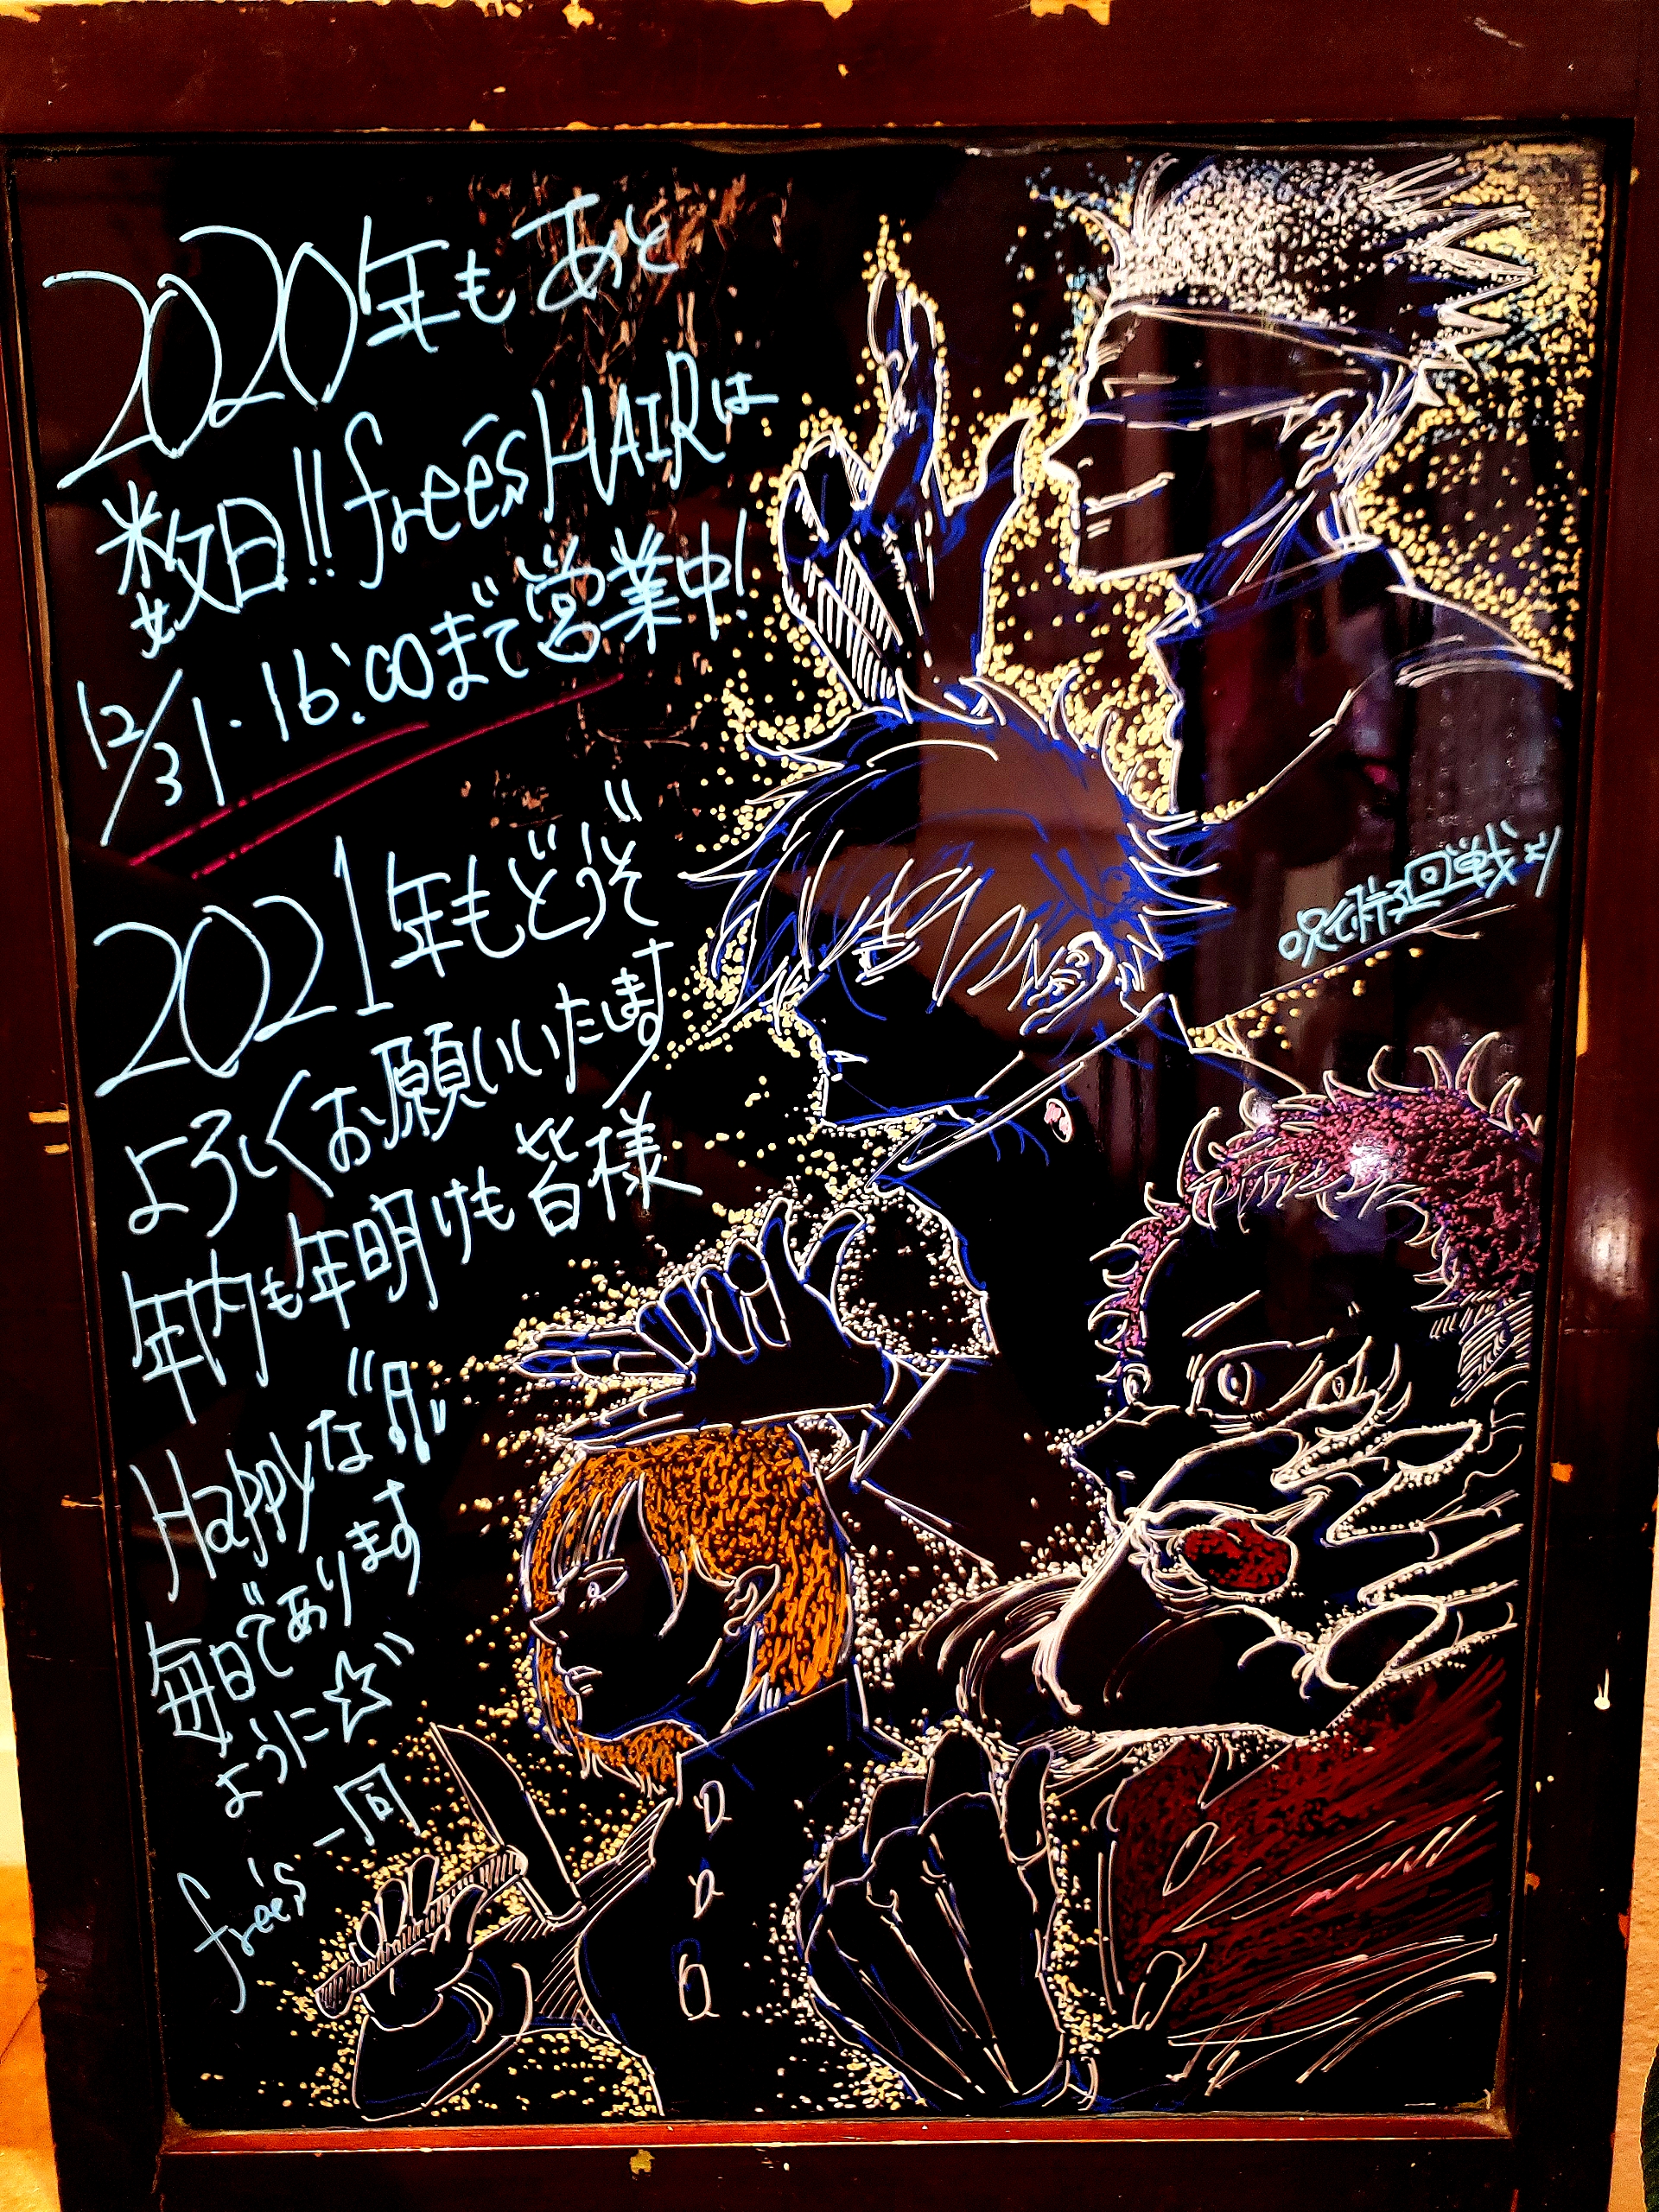 2020年もあと
数日!! free's HAIRは
12/31・16:00まで営業中!
2021年もどうぞ
よろしくお願いいたします
年内も年明けも皆様
Happyな
毎日であります
ように☆
free's 一同
呪術廻戦より